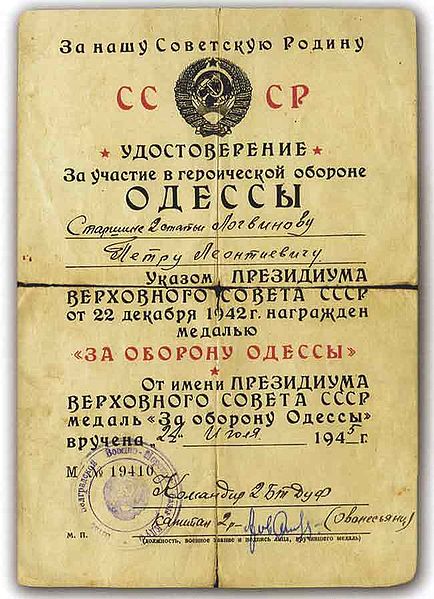 За нашу Советскую Родину
СС СР
УДОСТОВЕРЕНИЕ
За участие в героической обороне
ОДЕССЫ
Старшине 2 статьи Логвинову
Петру Леонтиевичу
Указом ПРЕЗИДИУМА
ВЕРХОВНОГО СОВЕТА СССР
от 22 декабря 1942 г. награжден
медалью
«ЗА ОБОРОНУ ОДЕССЫ»
От имени ПРЕЗИДИУМА
ВЕРХОВНОГО СОВЕТА СССР
медаль «За оборону Одессы»
вручена 22 Июля 1945 г.
М № 19410
Командир 2
капитан 2 р. (Ованесьянц)
М. П.
(должность, военное звание и подпись лица, вручившего медаль)